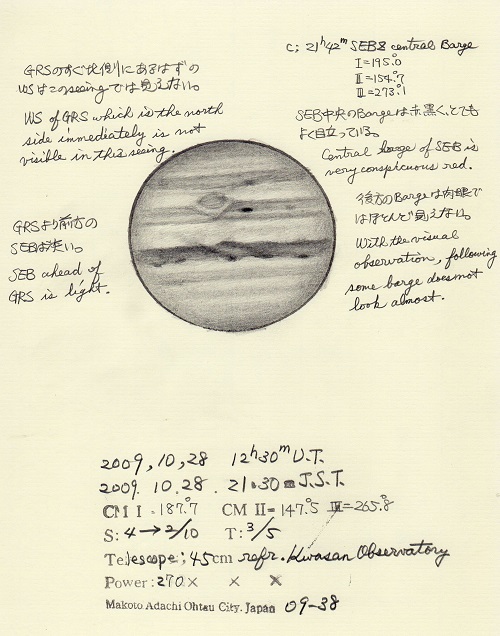 GRSのすぐ北側にあるはずの
WSはこのseeingでは見えない。
WS of GRS which is the north
side immediately is not
visible in this seeing.
GRSより前方の
SEBは淡い。
SEB ahead of
GRS is light.
C; 21h42m SEBZ central Barge
I=195.°0
II=154.°7
III=273.°1
SEB中央のBargeは赤黒く、とても
よく目立っている。
Central barge of SEB is
very conspicuous red.
後方のBargeは肉眼で
はほとんど見えない。
With the visual
observation, following
some barge doesnot
look almost.
2009,10,28 12h30m U.T.
2009. 10.28. 21.30m J.S.T.
CM I = 187.°7 CM II= 147.°5 III=265.°8
S: 4→2/10 T: 3/5
Telescope; 45cm refr. Kwasan Observatory
Power: 270× × ×
Makoto Adachi Ohtsu City. Japan 09-38